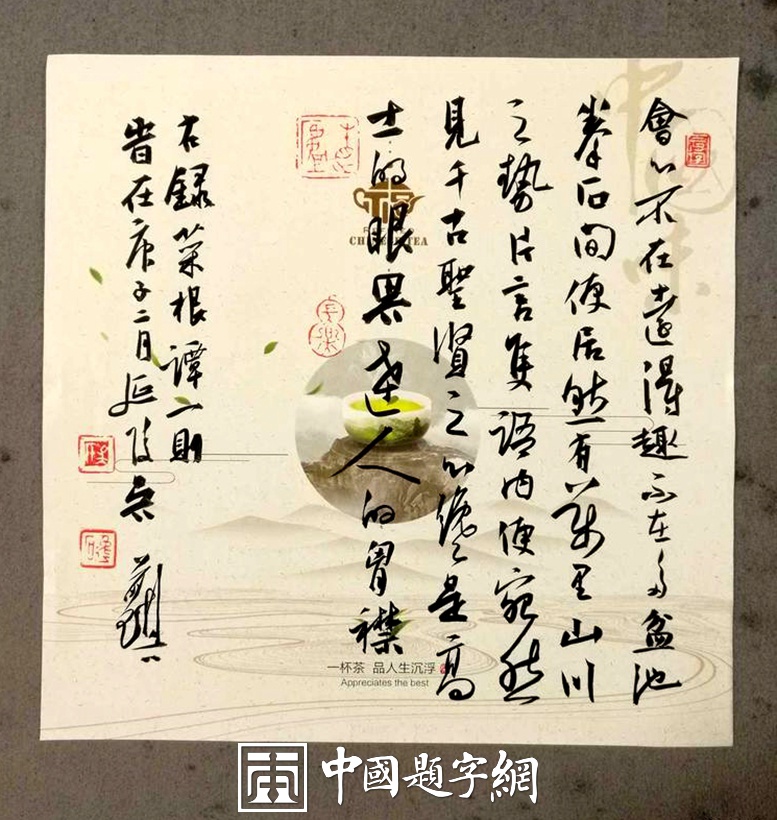 會心不在遠得趣不在多盆池
拳石間便居然有萬里山川
之勢片言隻語內便宛然
見千古聖賢之心纔是高
士的眼界達人的胷襟
右録菜根譚一則
旹在庚子二月延陵
一杯茶 品人生沉浮
Appreciates the best
中國題字網